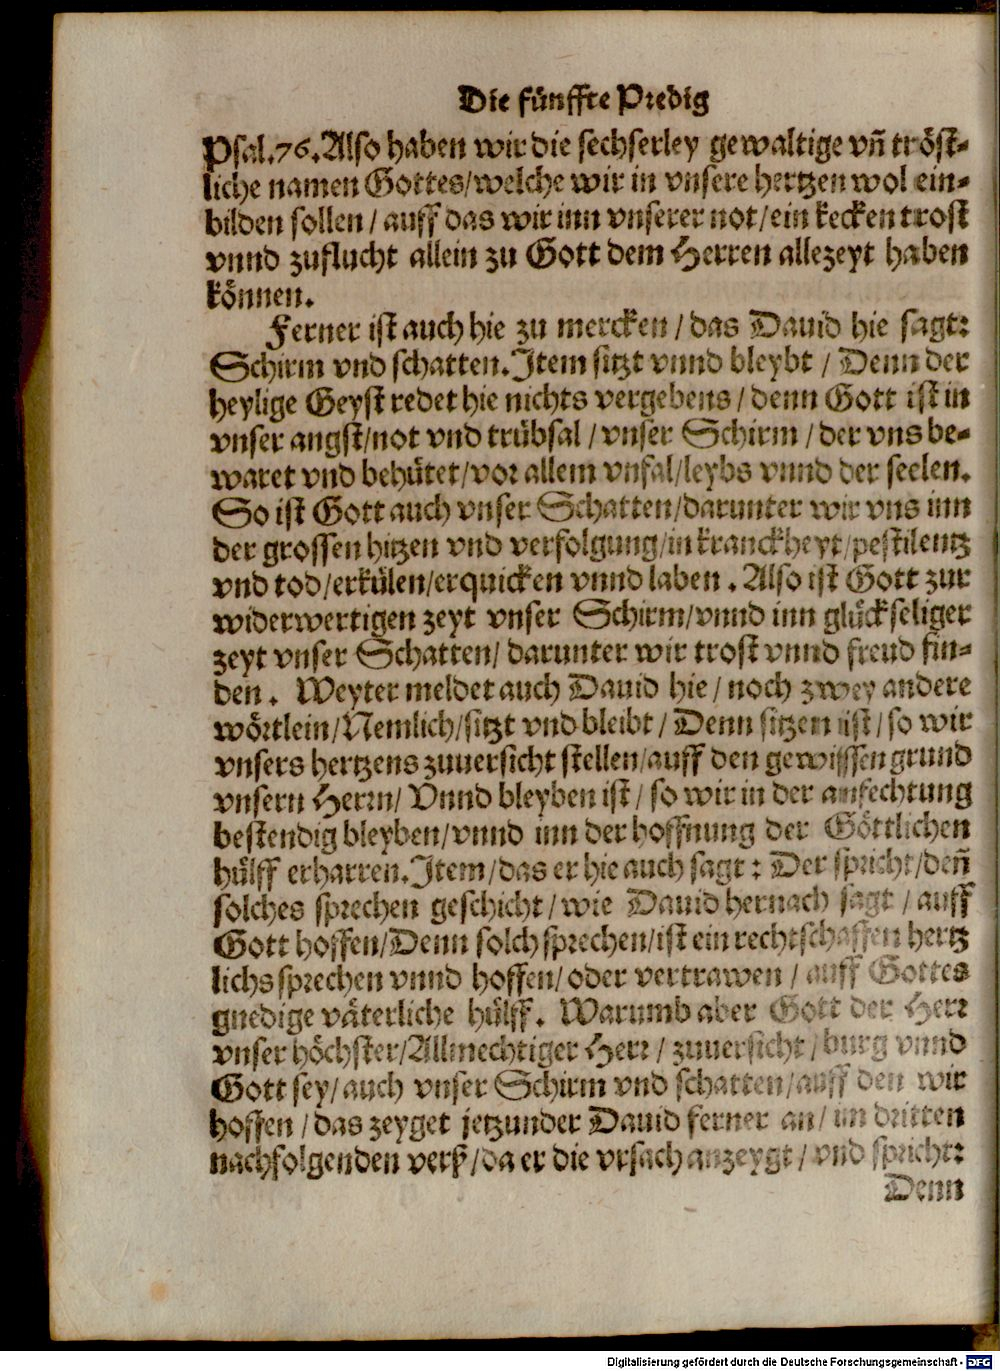 Die fünffte Predig
Psal.76. Also haben wir die sechserley gewaltige vñ tröst-
liche namen Gottes/welche wir in vnsere hertzen wol ein-
bilden sollen / auff das wir inn vnserer not/ein kecken trost
vnnd zuflucht allein zu Gott dem Herren allezeyt haben
können.
Ferner ist auch hie zu mercken / das Dauid hie sagt:
Schirm vnd schatten. Item sitzt vnnd bleybt / Denn der
heylige Geyst redet hie nichts vergebens / denn Gott ist in
vnser angst/not vnd trübsal / vnser Schirm / der vns be-
waret vnd behütet/vor allem vnfal/leybs vnnd der seelen.
So ist Gott auch vnser Schatten/darunter wir vns inn
der grossen hitzen vnd verfolgung/in kranckheyt/pestilentz
vnd tod/erkülen/erquicken vnnd laben. Also ist Gott zur
widerwertigen zeyt vnser Schirm/vnnd inn glückseliger
zeyt vnser Schatten/ darunter wir trost vnnd freud fin-
den. Weyter meldet auch Dauid hie / noch zwey andere
wörtlein/Nemlich/sitzt vnd bleibt / Denn sitzen ist / so wir
vnsers hertzens zuuersicht stellen/auff den gewissen grund
vnsern Herrn/ Vnnd bleyben ist / so wir in der anfechtung
bestendig bleyben/vnnd inn der hoffnung der Göttlichen
hülff erharren. Item/das er hie auch sagt: Der spricht/deñ
solches sprechen geschicht / wie Dauid hernach sagt / auff
Gott hoffen/Denn solch sprechen/ist ein rechtschaffen hertz
lichs sprechen vnnd hoffen/ oder vertrawen / auff Gottes
gnedige väterliche hülff. Warumb aber Gott der Herr
vnser höchster/Allmechtiger Herr / zuuersicht / burg vnnd
Gott sey/ auch vnser Schirm vnd schatten/auff den wir
hoffen / das zeyget jetzunder Dauid ferner an / im dritten
nachfolgenden verß/da er die vrsach anzeygt / vnd spricht:
Denn
Digitalisierung gefördert durch die Deutsche Forschungsgemeinschaft - DFG